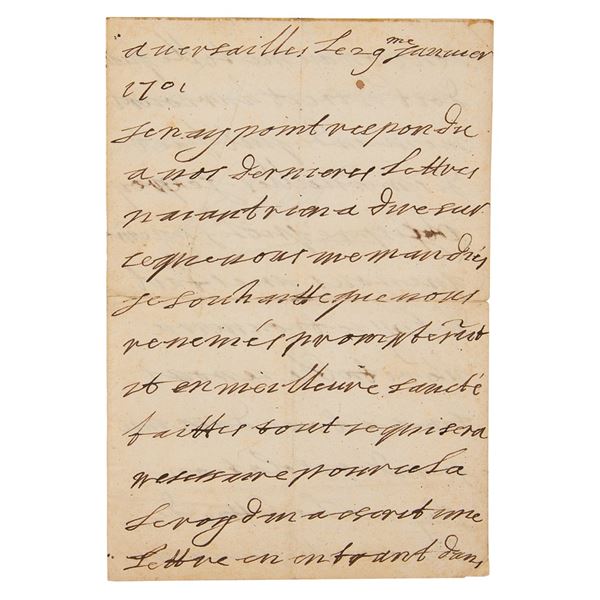 a versailles le 29me janvier
1701
Je nay point respondu
a vos dernieres lettres
naiant rien a dire sur
ce que vous me mandiés
je souhaitte que vous
reveniés promptemt
et en meilleure sancté
faittes tout ce qui sera
nescessaire pour cela
le roy d m a escrit une
lettre en entrant dans